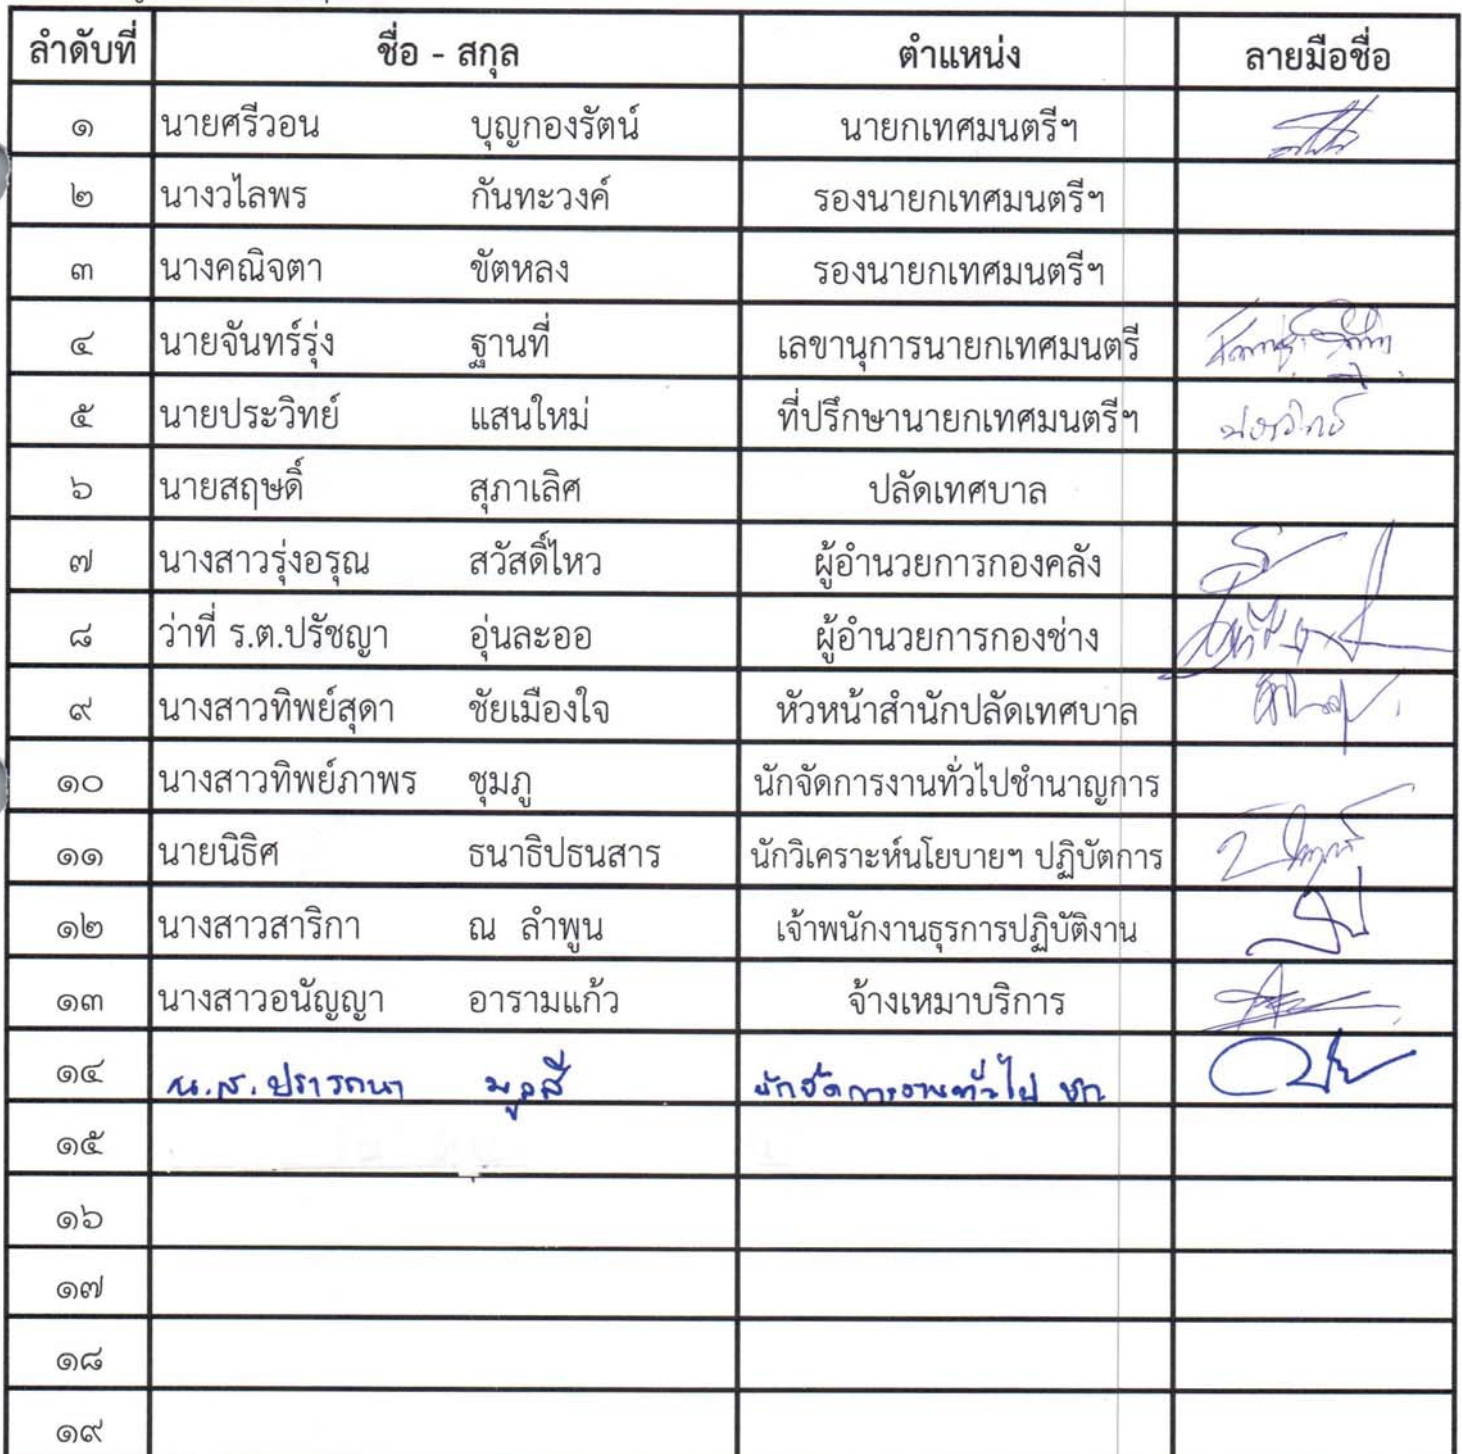 ลำดับที่ ชื่อ - สกุล ตำแหน่ง ลายมือชื่อ
๑ นายศรีวอน บุญกองรัตน์ นายกเทศมนตรีฯ
๒ นางวไลพร กันทะวงค์ รองนายกเทศมนตรีฯ
๓ นางคณิจตา ขัตหลง รองนายกเทศมนตรีฯ
๔ นายจันทร์รุ่ง ฐานที่ เลขานุการนายกเทศมนตรี
๕ นายประวิทย์ แสนใหม่ ที่ปรึกษานายกเทศมนตรีฯ ประวิทย์
๖ นายสฤษดิ์ สุภาเลิศ ปลัดเทศบาล
๗ นางสาวรุ่งอรุณ สวัสดิ์ไหว ผู้อำนวยการกองคลัง
๘ ว่าที่ ร.ต.ปรัชญา อุ่นละออ ผู้อำนวยการกองช่าง
๙ นางสาวทิพย์สุดา ชัยเมืองใจ หัวหน้าสำนักปลัดเทศบาล
๑๐ นางสาวทิพย์ภาพร ชุมภู นักจัดการงานทั่วไปชำนาญการ
๑๑ นายนิธิศ ธนาธิปธนสาร นักวิเคราะห์นโยบายฯ ปฏิบัตการ
๑๒ นางสาวสาริกา ณ ลำพูน เจ้าพนักงานธุรการปฏิบัติงาน
๑๓ นางสาวอนัญญา อารามแก้ว จ้างเหมาบริการ
๑๔ น.ส. ปรารถนา มูลสี นักจัดการงานทั่วไป ชก
๑๕
๑๖
๑๗
๑๘
๑๙